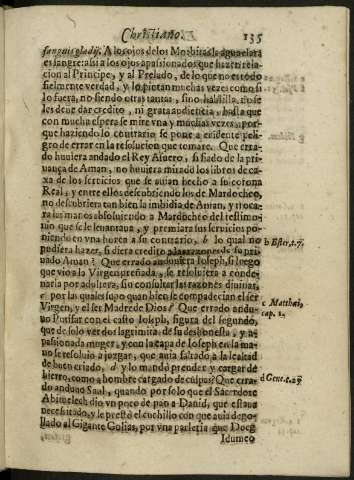 Christiano. 135
sanguis gladij. A los ojos de los Moabitas la agua clara
es sangre: assi a los ojos apasionados que hazen rela-
cion al Principe, y al Prelado, de lo que no es todo
fielmente verdad, y lo pintan muchas vezes como si
lo fuera, no siendo otras tantas, sino hablilla, no se
les deue dar credito, ni grata audiencia, hasta que
con mucha espera se mire vna y muchas vezes, por-
que haziendo lo contrario se pone a euidente peli-
gro de errar en la resolucion que tomare. Que erra-
do huuiera andado el Rey Asuero, si fiado de la pri-
uança de Aman, no huuiera mirado los libros de ca-
xa de los seruicios que se auian hecho a su corona
Real, y entre ellos descubriendo los de Mardocheo,
no descubriera tan bien la imbidia de Aman, y troca-
ra las manos absoluiendo a Mardocheo del testimo-
nio que se le leuantaua, y premiara sus seruicios po-
niendo en vna horca a su contrario, b lo qual no
pudiera hazer, si diera credito a las razones de su pri-
uado Aman? Que errado anduuiera Ioseph, si luego
que vio a la Virgen preñada, se resoluiera a conde-
narla por adultera, sin consultar las razones diuinas,
c por las quales supo quan bien se compadecian el ser
Virgen, y el ser Madre de Dios? Que errado andu-
uo Putifar con el casto Ioseph, figura del segundo,
que de solo ver dos lagrimitas de su deshonesta, y a-
pasionada muger, y con la capa de Ioseph en la ma-
no se resoluio a juzgar, que auia faltado a la lealtad
de buen criado, d y lo mandò prender y cargar de
hierro, como a hombre cargado de culpas? Que erra-
do anduuo Saul, quando por solo que el Sacerdote
Abimelech dio vn poco de pan a Dauid, que estaua
necessitado, y le prestò el cuchillo con que auia dego-
llado al Gigante Golias, por vna parleria que Doeg
Idumeo
b Ester, c. 7.
c Matthæi,
cap. 1.
d Gene. c. 39